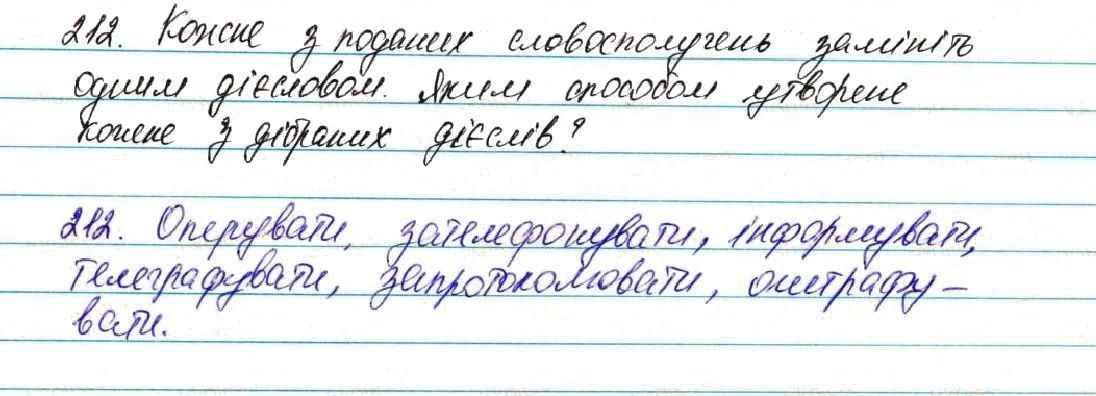 212. Кожне з поданих словосполучень замініть
одним дієсловом. Яким способом утворене
кожне з дібраних дієслів?
212. Оперувати, зателефонувати, інформувати,
телеграфувати, запротоколювати, оштрафу-
вати.